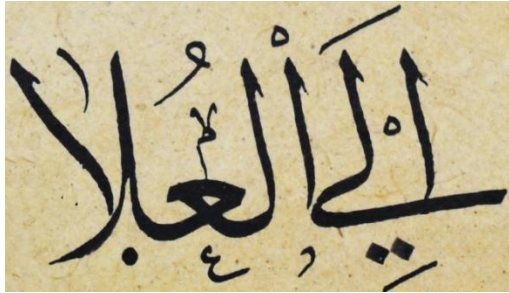 إلي الْعُلا